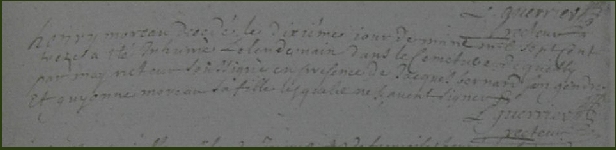 L guerrier
recteur
henry moreau decedé le dixiéme jour de mars mil sept cent
treze a eté Inhumé Le lendemain dans le Cemetiere de
par moy recteur soussigné en presence de Jacques bernard son gendre
Et guyonne moreau sa fille lesquels ne scavent signer
L guerrier
recteur